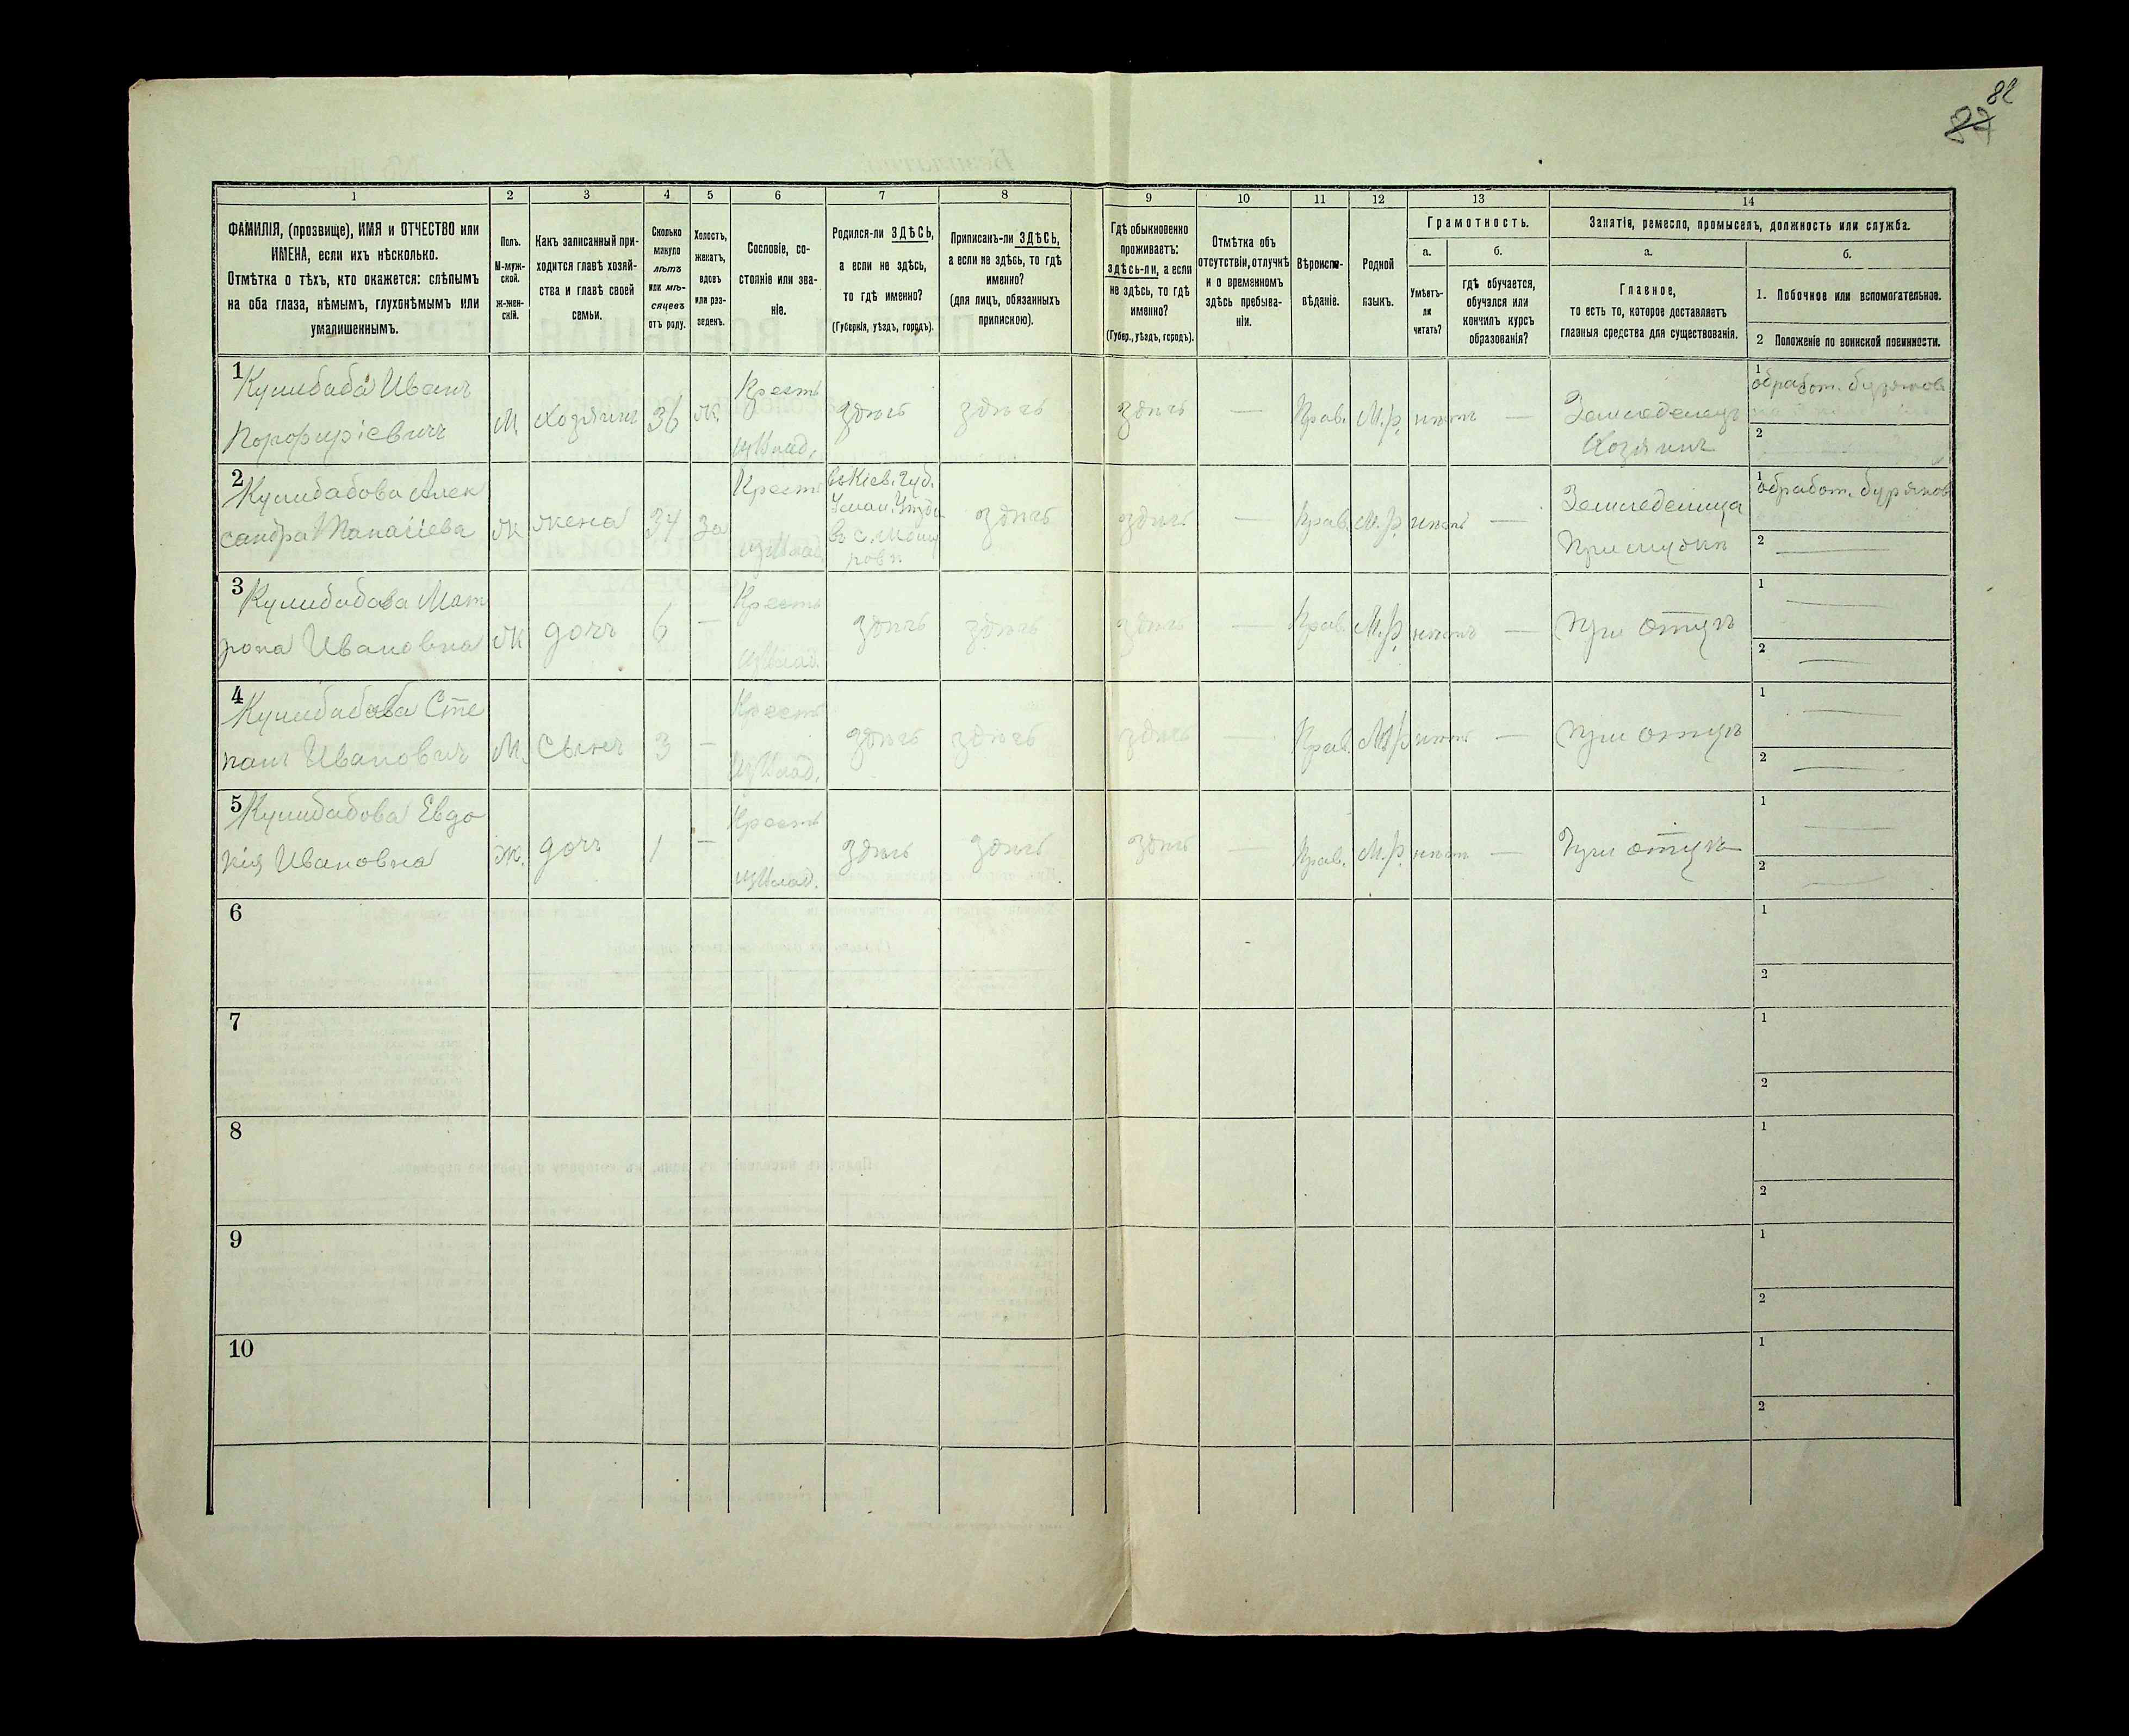 82
1
2
3
4
5
6
7
8
9
10
11
12
13
14
ФАМИЛІЯ, (прозвище), ИМЯ и ОТЧЕСТВО или
ИМЕНА, если ихъ нѣсколько.
Отмѣтка о тѣхъ, кто окажется: слѣпымъ
на оба глаза, нѣмымъ, глухонѣмымъ или
умалишеннымъ.
Полъ.
М-муж-
ской.
Ж-жен-
скій.
Какъ записанный при-
ходится главѣ хозяй-
ства и главѣ своей
семьи.
Сколько
минуло
лѣтъ
или мѣ-
сяцевъ
отъ роду.
Холостъ,
женатъ,
вдовъ
или раз-
веденъ.
Сословіе, со-
стояніе или зва-
ніе.
Родился-ли ЗДѢСЬ,
а если не здѣсь,
то гдѣ именно?
(Губернія, уѣздъ, городъ).
Приписанъ-ли ЗДѢСЬ,
а если не здѣсь, то гдѣ
именно?
(для лицъ, обязанныхъ
припискою).
Гдѣ обыкновенно
проживаетъ:
здѣсь-ли, а если
не здѣсь, то гдѣ
именно?
(Губер., уѣздъ, городъ).
Отмѣтка объ
отсутствіи, отлучкѣ
и о временномъ
здѣсь пребыва-
ніи.
Вѣроиспо-
вѣданіе.
Родной
языкъ.
Грамотность.
а.
б.
Умѣетъ-
ли
читать?
гдѣ обучается,
обучался или
кончилъ курсъ
образованія?
Занятія, ремесло, промыселъ, должность или служба.
а.
б.
Главное,
то есть то, которое доставляетъ
главныя средства для существованія.
1. Побочное или вспомогательное.
2 Положеніе по воинской повинности.
1
Кулибаба Иванъ
Порфиріевичъ
М
хозяинъ
36
ж
Крестъ
изъ влад.
здѣсь
здѣсь
здѣсь
—
Прав.
М.р.
нѣтъ
—
Земледелецъ
Хозяинъ
1
обработ. буряковъ
2
2
Кулибабова Алек
сандра
ж
жена
34
за
Крестъ
изъ влад.
въ Кіев. губ.
Уман. Уѣзда
въ с.
здѣсь
здѣсь
—
Прав.
М.р.
нѣтъ
—
Земледелица
При мужѣ
1
обработ. буряков
2
—
3
Кулибабова Мат
рона Ивановна
ж
дочь
6
—
Крестъ
изъ влад.
здѣсь
здѣсь
здѣсь
—
Прав.
М.р.
нѣтъ
—
При отцѣ
1
—
2
—
4
Кулибабова Сте
панъ Ивановичъ
М.
сынъ
3
—
Крестъ
изъ влад.
здѣсь
здѣсь
здѣсь
—
Прав.
М.р.
нѣтъ
—
При отцѣ
1
—
2
—
5
Кулибабова Евдо
кія Ивановна
ж.
дочь
1
—
Крестъ
изъ влад.
здѣсь
здѣсь
здѣсь
—
Прав.
М.р.
нѣтъ
—
При отцѣ
1
—
2
—
6
1
2
7
1
2
8
1
2
9
1
2
10
1
2